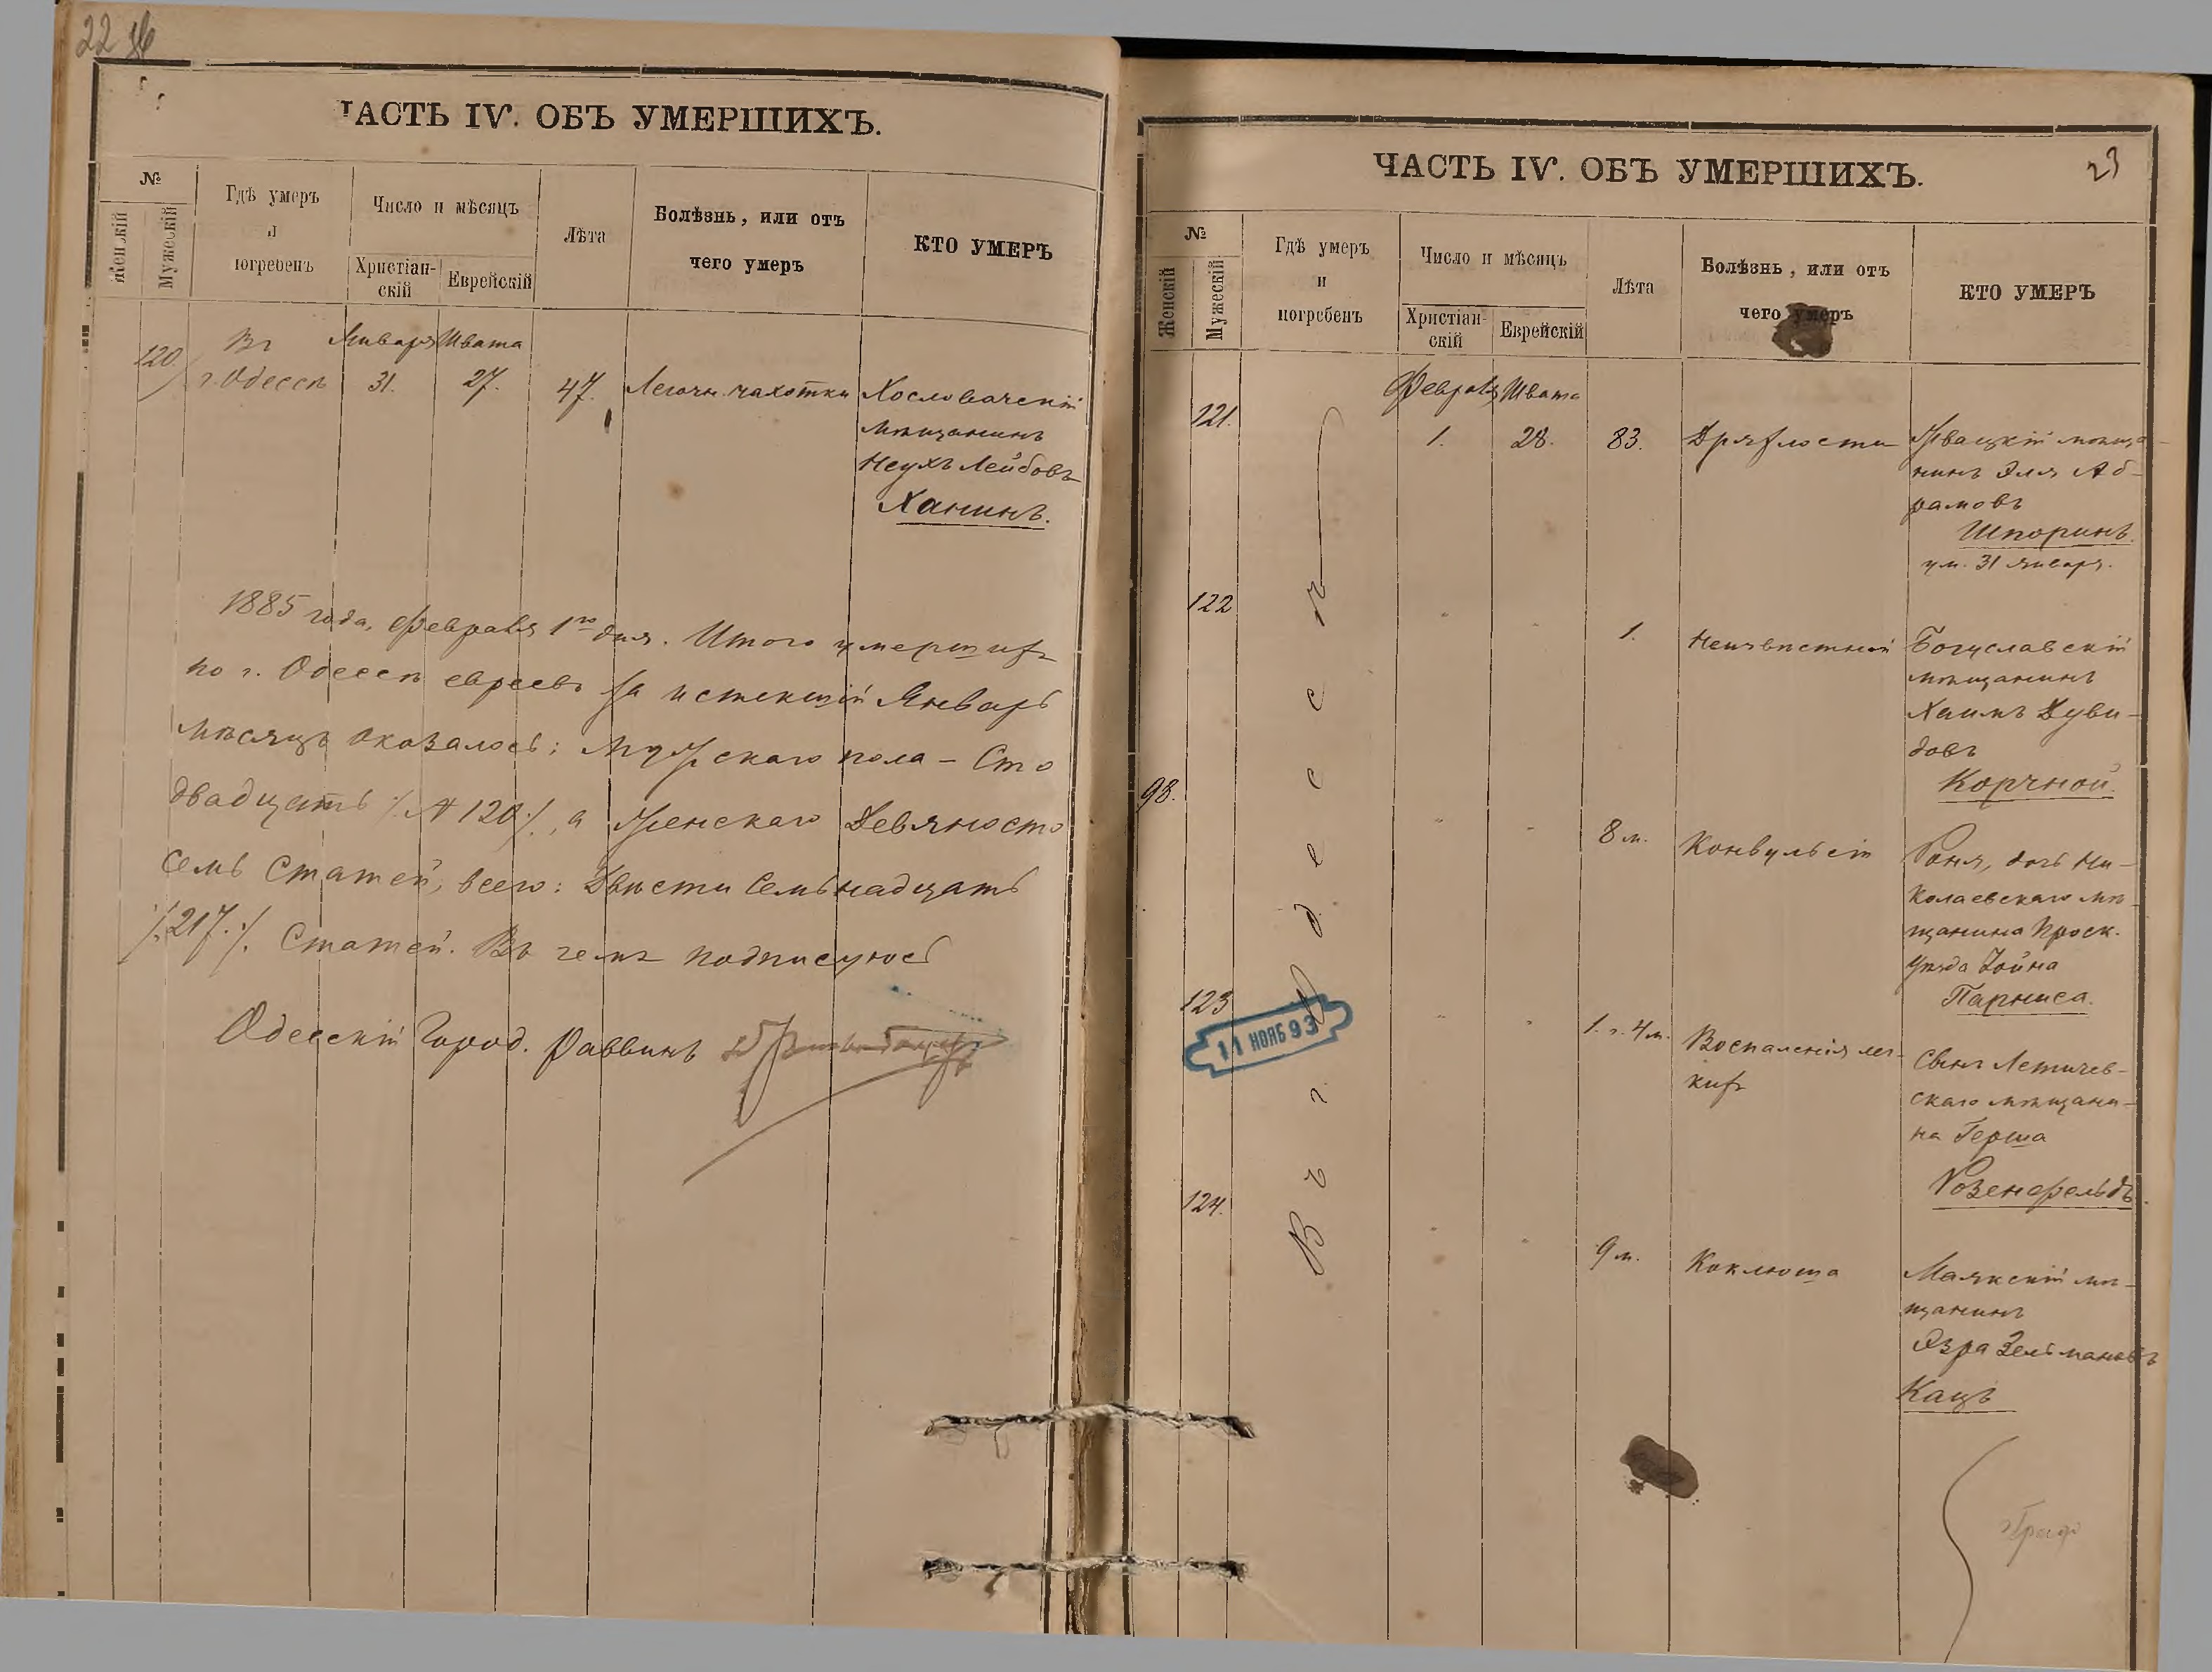 22
ЧАСТЬ IV. ОБЪ УМЕРШИХЪ.
№
Женскій
Мужескій
Гдѣ умеръ
и
погребенъ
Число и мѣсяцъ
Христіан-
скій
Еврейскій
Лѣта
Болѣзнь, или отъ
чего умеръ
КТО УМЕРЪ
120.
Въ
г. Одессѣ
Января
31.
Швата
27.
47.
Легочн. чахотки
Хославичскій
мѣщанинъ
Неухъ Лейбовъ
Ханинъ.
1885 года, февраля 1го дня. Итого умершихъ
по г. Одессѣ евреевъ за истекшій Январь
мѣсяцъ оказалось: мужскаго пола – Сто
двадцать /.№ 120./, а женскаго Девяносто
семь Статей, всего: Двѣсти Семьнадцать
/.217./. Статей. Въ чемъ подписуюсь
Одесскій Город. Раввинъ
23
ЧАСТЬ IV. ОБЪ УМЕРШИХЪ.
№
Женскій
Мужескій
Гдѣ умеръ
и
погребенъ
Число и мѣсяцъ
Христіан-
скій
Еврейскій
Лѣта
Болѣзнь, или отъ
чего умеръ
КТО УМЕРЪ
Въ г. Одессѣ
121.
Февраля
1.
Швата
28.
83.
Дряхлости
мѣща-
нинъ Эля Аб-
рамовъ
Шпоринъ.
ум. 31 января.
122
"
"
1.
Неизвѣстной
Богуславскій
мѣщанинъ
Хаимъ Дуви-
довъ
Корчной.
98.
"
"
8 м.
Конвульсій
Роня, дочь Ни-
колаевскаго мѣ-
щанина Проск.
уѣзда Зойна
Парниса.
123
"
"
1. г. 4 м.
Воспаленія лег-
кихъ
Сынъ Летичев-
скаго мѣщани-
на Герша
Розенфельдъ.
11 НОЯБ 93
124.
"
"
9 м.
Коклюша
Маякскій мѣ-
щанинъ
Эзра Зельмановъ
Кацъ